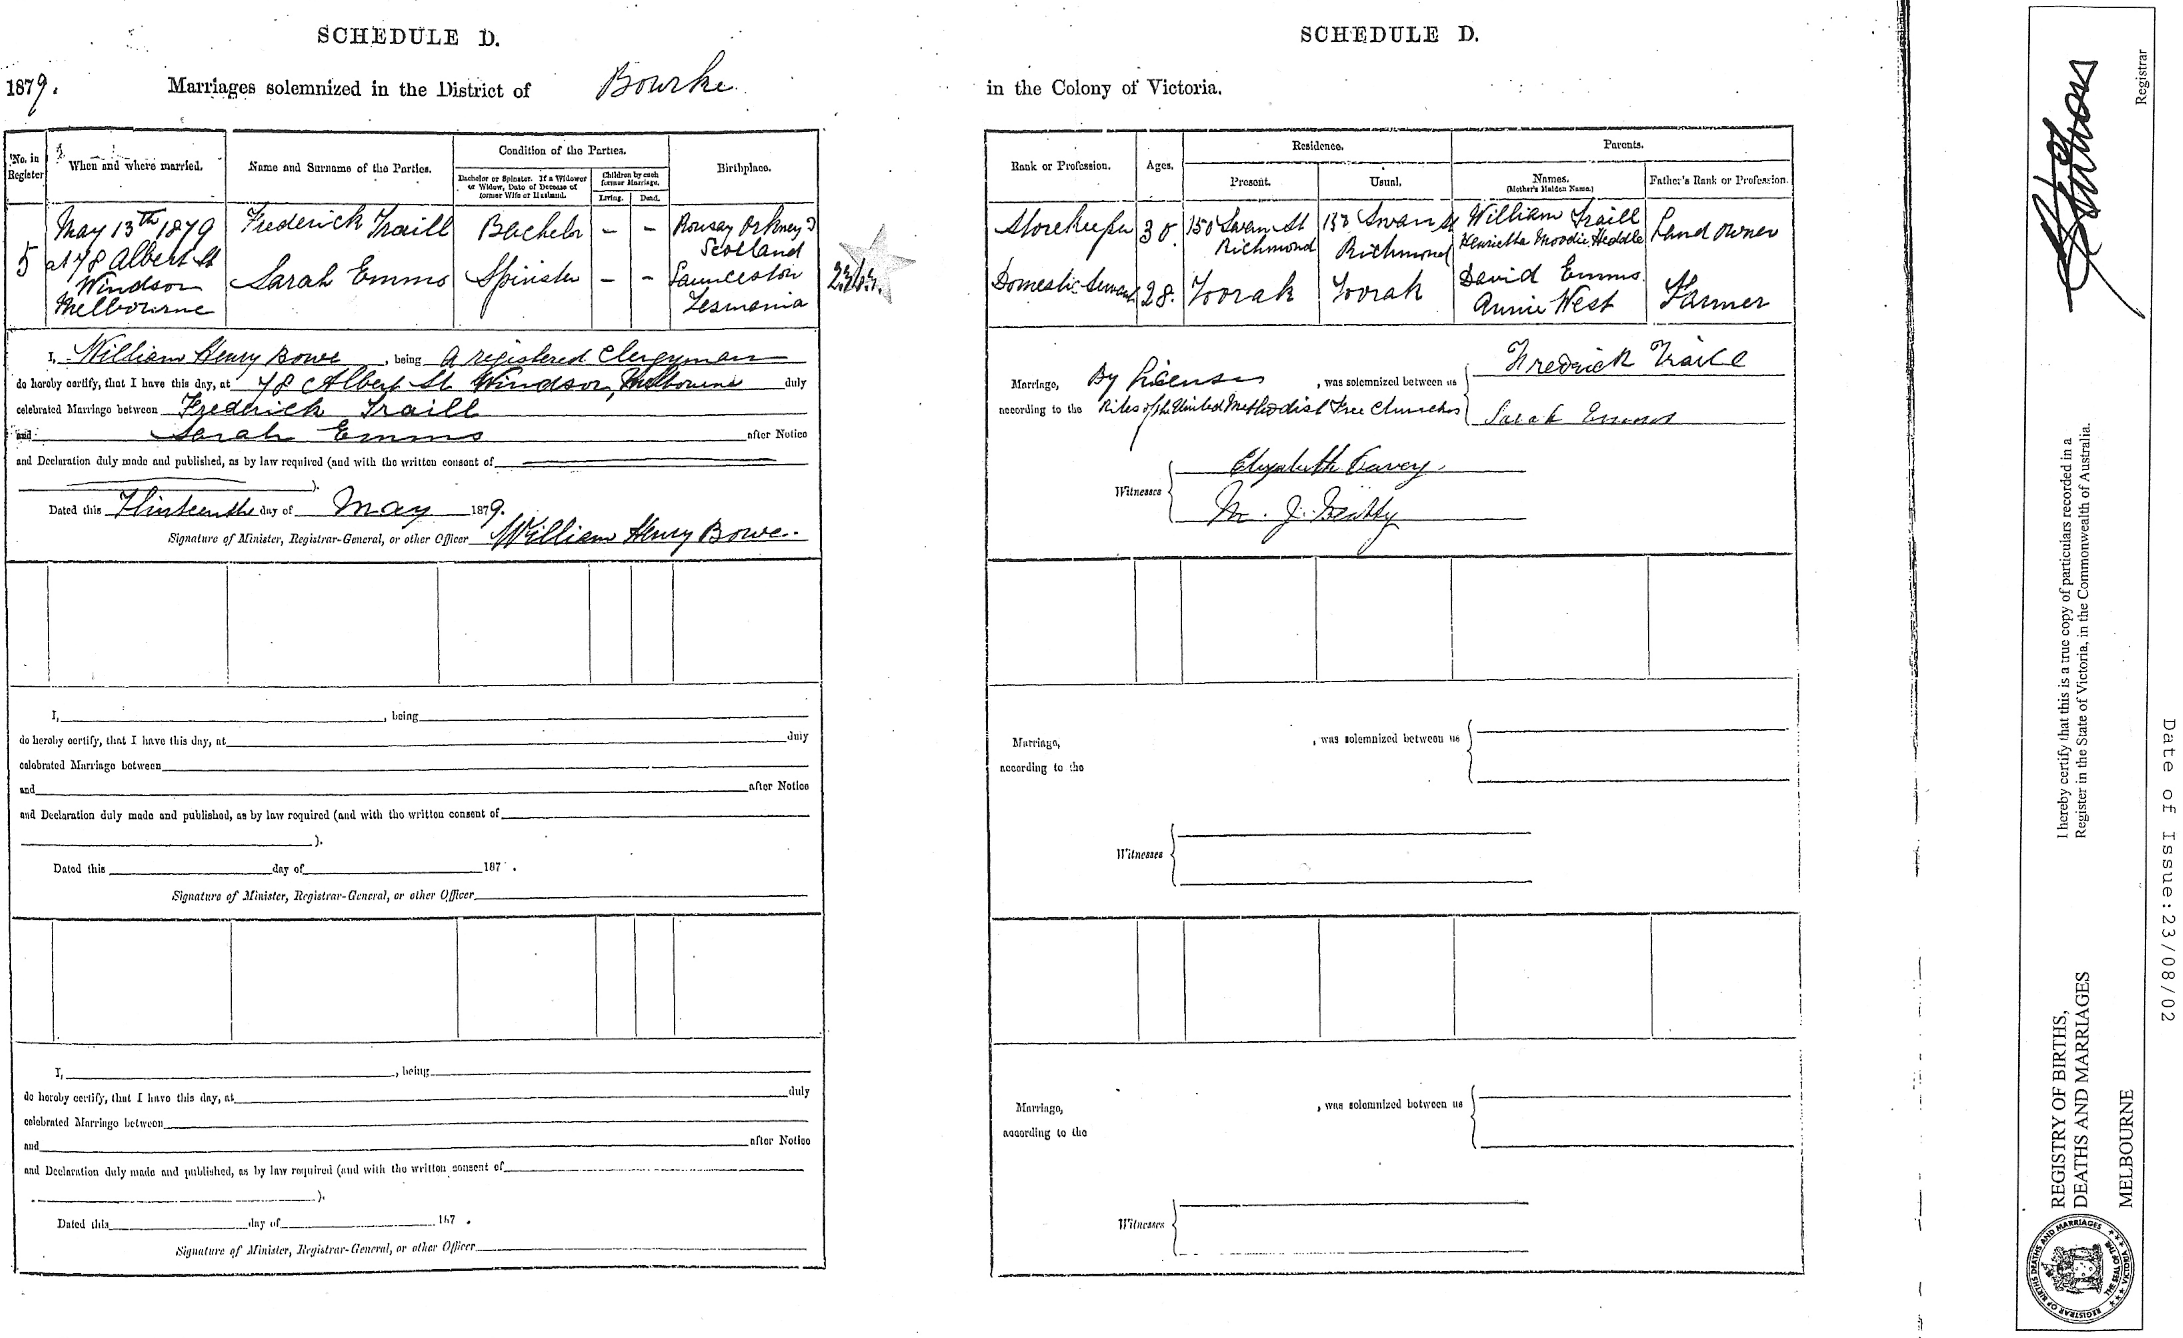 SCHEDULE D.
1879. Marriages solemnized in the District of Bourke
No. in Register
When and where married.
Name and Surname of the Parties.
Condition of the Parties.
Bachelor or Spinster. If a Widower or Widow, Date of Decease of former Wife or Husband.
Children by each former Marriage.
Living. Dead.
Birthplace.
5
May 13th 1879
at 78 Albert St
Windsor
Melbourne
Frederick Traill
Bachelor
– –
Rousay Orkney
Scotland
Sarah Emms
Spinster
– –
Launceston
Tesmania
I, William Henry Bowe, being A registered Clergyman
do hereby certify, that I have this day, at 78 Albert St Windsor, Melbourne duly
celebrated Marriage between Frederick Traill
and Sarah Emms after Notice
and Declaration duly made and published, as by law required (and with the written consent of
).
Dated this Thirteenth day of May 1879.
Signature of Minister, Registrar-General, or other Officer William Henry Bowe.
I, , being
do hereby certify, that I have this day, at duly
celebrated Marriage between
and after Notice
and Declaration duly made and published, as by law required (and with the written consent of
).
Dated this day of 187 .
Signature of Minister, Registrar-General, or other Officer
I, , being
do hereby certify, that I have this day, at duly
celebrated Marriage between
and after Notice
and Declaration duly made and published, as by law required (and with the written consent of
).
Dated this day of 187 .
Signature of Minister, Registrar-General, or other Officer
SCHEDULE D.
in the Colony of Victoria.
Rank or Profession.
Ages.
Residence.
Present. Usual.
Parents.
Names.
(Mother's Maiden Name.)
Father's Rank or Profession.
Storekeeper
30.
150 Swan St
Richmond
Swan St
Richmond
William Traill
Henrietta Moodie Heddle
Land owner
Domestic Servant
28.
Toorak
Toorak
David Emms.
Annie West
Farmer
Marriage, By License, was solemnized between us
according to the Rites of the United Methodist Free Churches
Frederick Traill
Sarah Emms
Witnesses
Elizabeth
M. J.
Marriage, , was solemnized between us
according to the
Witnesses
Marriage, , was solemnized between us
according to the
Witnesses
Registrar
I hereby certify that this is a true copy of particulars recorded in a
Register in the State of Victoria, in the Commonwealth of Australia.
REGISTRY OF BIRTHS,
DEATHS AND MARRIAGES
MELBOURNE
REGISTRAR OF BIRTHS DEATHS AND MARRIAGES
THE SEAL OF THE
VICTORIA
Date of Issue:23/08/02